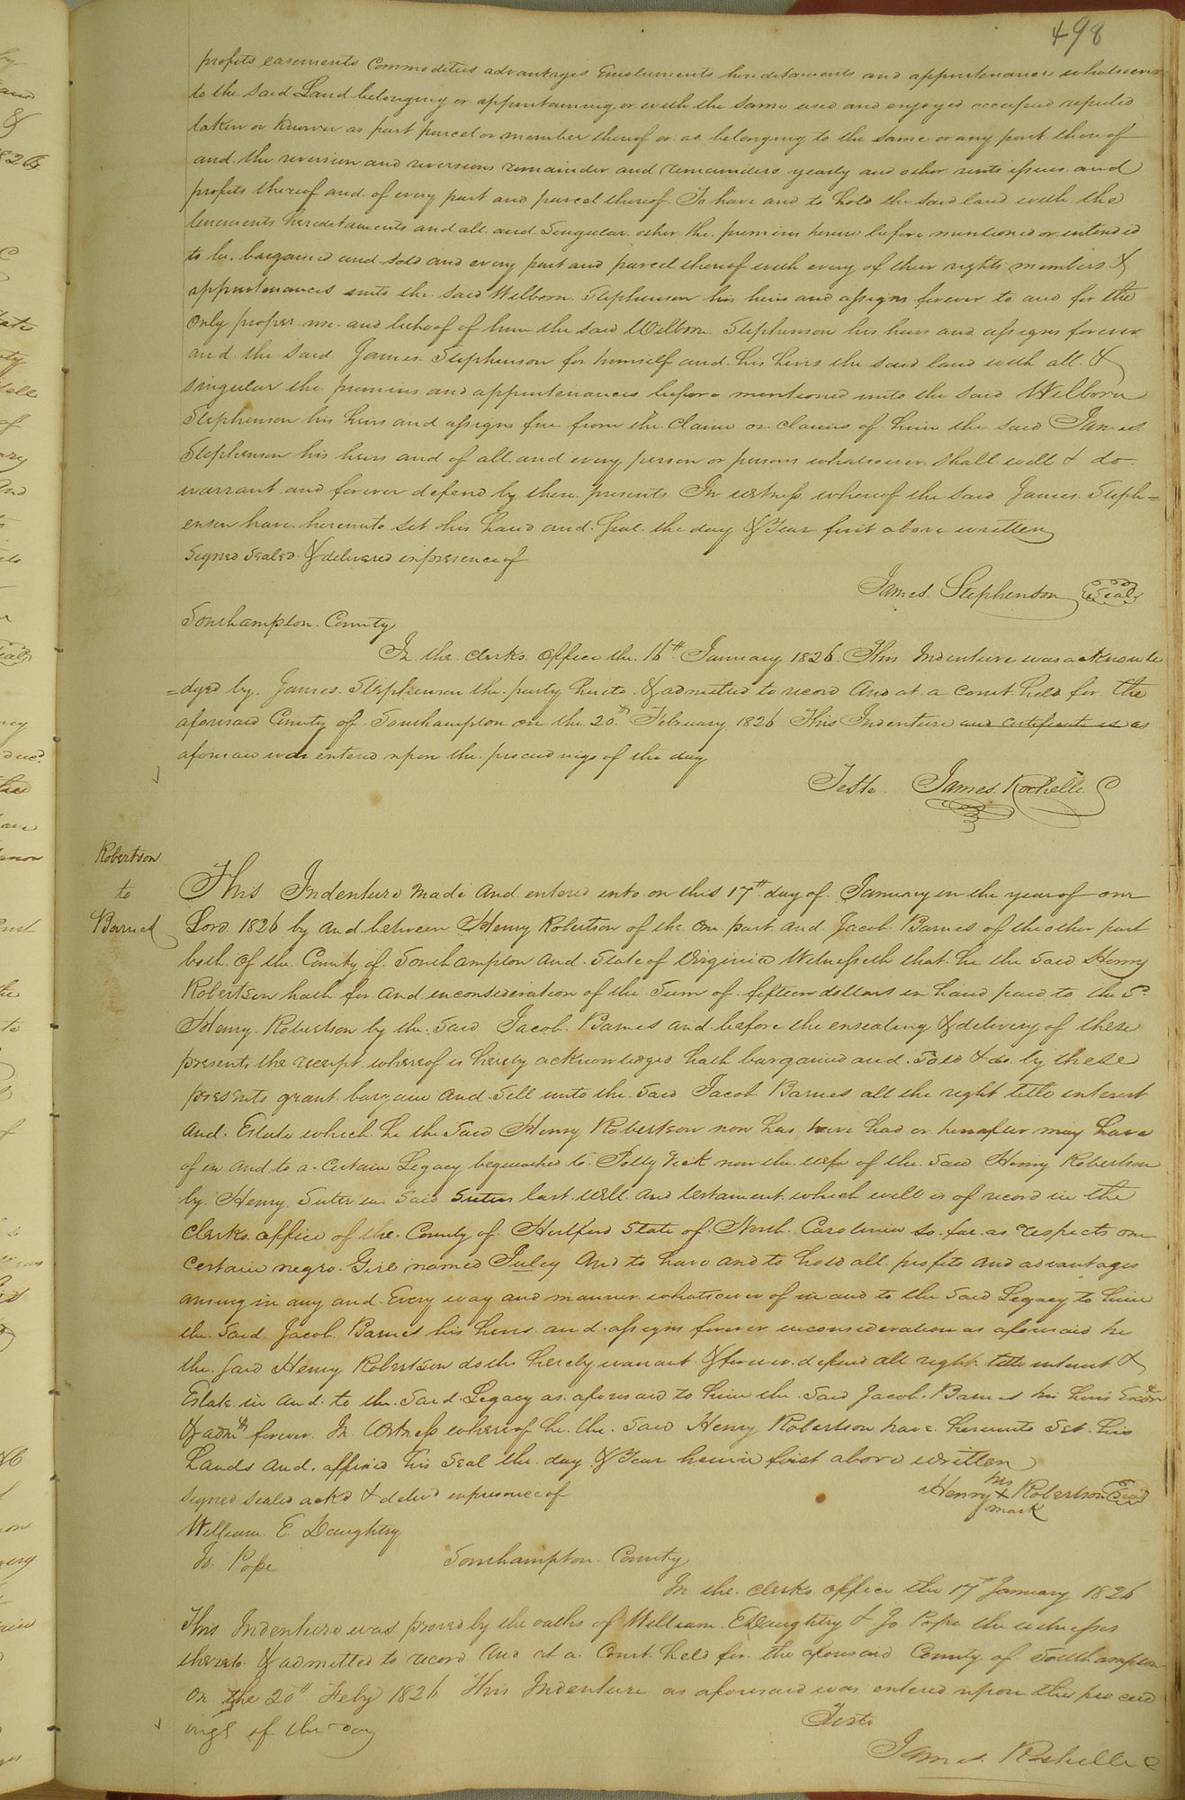 498
profits easements Commodities advantages Emoluments hereditaments and appurtenances whatsoever
to the said Land belonging or appertaining or with the same used and enjoyed occupied reputed
taken or known as part parcel or member thereof or as belonging to the same or any part thereof
and the reversion and reversions remainder and remainders yearly and other rents issues and
profits thereof and of every part and parcel thereof To have and to hold the said land with the
tenements hereditaments and all and Singular other the premises herein before mentioned or intended
to be bargained and sold and every part and parcel thereof with every of their rights members &
appurtenances unto the said Wilborn Stephenson his heirs and assigns forever to and for the
only proper use and behoof of him the said Wilborn Stephenson his heirs and assigns forever
and the said James Stephenson for himself and his heirs the said land with all &
singular the premises and appurtenances before mentioned unto the said Wilborn
Stephenson his heirs and assigns free from the claim or claims of him the said James
Stephenson his heirs and of all and every person or persons whatsoever shall will & do
warrant and forever defend by these presents In witness whereof the said James Steph=
enson have hereunto set his hand and Seal the day & Year first above written
Signed Sealed & delivered in presence of
James Stephenson Seal
Southampton County
In the clerks office the 16th January 1826 This Indenture was acknowle
=dged by James Stephenson the party hereto & admitted to record And at a Court held for the
aforesaid County of Southampton on the 20th February 1826 This Indenture and certificate is as
aforesaid was entered upon the proceedings of the day
Teste James Rochelle C
Robertson
to
Barnes
This Indenture made and entered into on this 17th day of January in the year of our
Lord 1826 by and between Henry Robertson of the one part and Jacob Barnes of the other part
both of the County of Southampton and State of Virginia Witnesseth that he the said Henry
Robertson hath for and in consideration of the Sum of fifteen dollars in hand paid to the Sd
Henry Robertson by the said Jacob Barnes and before the ensealing & delivery of these
presents the receipt whereof is hereby acknowledged hath bargained and Sold & do by these
presents grant bargain and Sell unto the Said Jacob Barnes all the right title interest
and Estate which he the Said Henry Robertson now has have had or hereafter may have
of in and to a certain Legacy bequeathed to Polly now the wife of the Said Henry Robertson
by Henry in Said last will and testament which will is of record in the
clerks office of the County of Hertford State of North Carolina so far as respects one
certain negro Girl named And to have and to hold all profits and advantages
arising in any and Every way and manner whatsoever of in and to the Said Legacy to him
the Said Jacob Barnes his heirs and assigns forever in consideration as aforesaid he
the said Henry Robertson doth hereby warrant & forever defend all right title interest &
Estate in and to the Said Legacy as aforesaid to him the Said Jacob Barnes his heirs
& admrs forever In Witness whereof he the said Henry Robertson have hereunto Set his
hands and affixed his Seal the day & Year herein first above written
Signed sealed ackd & delivd in presence of
Henry his + mark Robertson Seal
William E Daughtry
Jo. Pope
Southampton County
In the clerks office the 17th January 1826
This Indenture was proved by the oaths of William E Daughtry & Jo Pope the witnesses
thereto & admitted to record And at a Court held for the aforesaid County of Southampton
on the 20th Feby 1826 This Indenture as aforesaid was entered upon the proceed
ings of the day
Teste
James Rochelle C